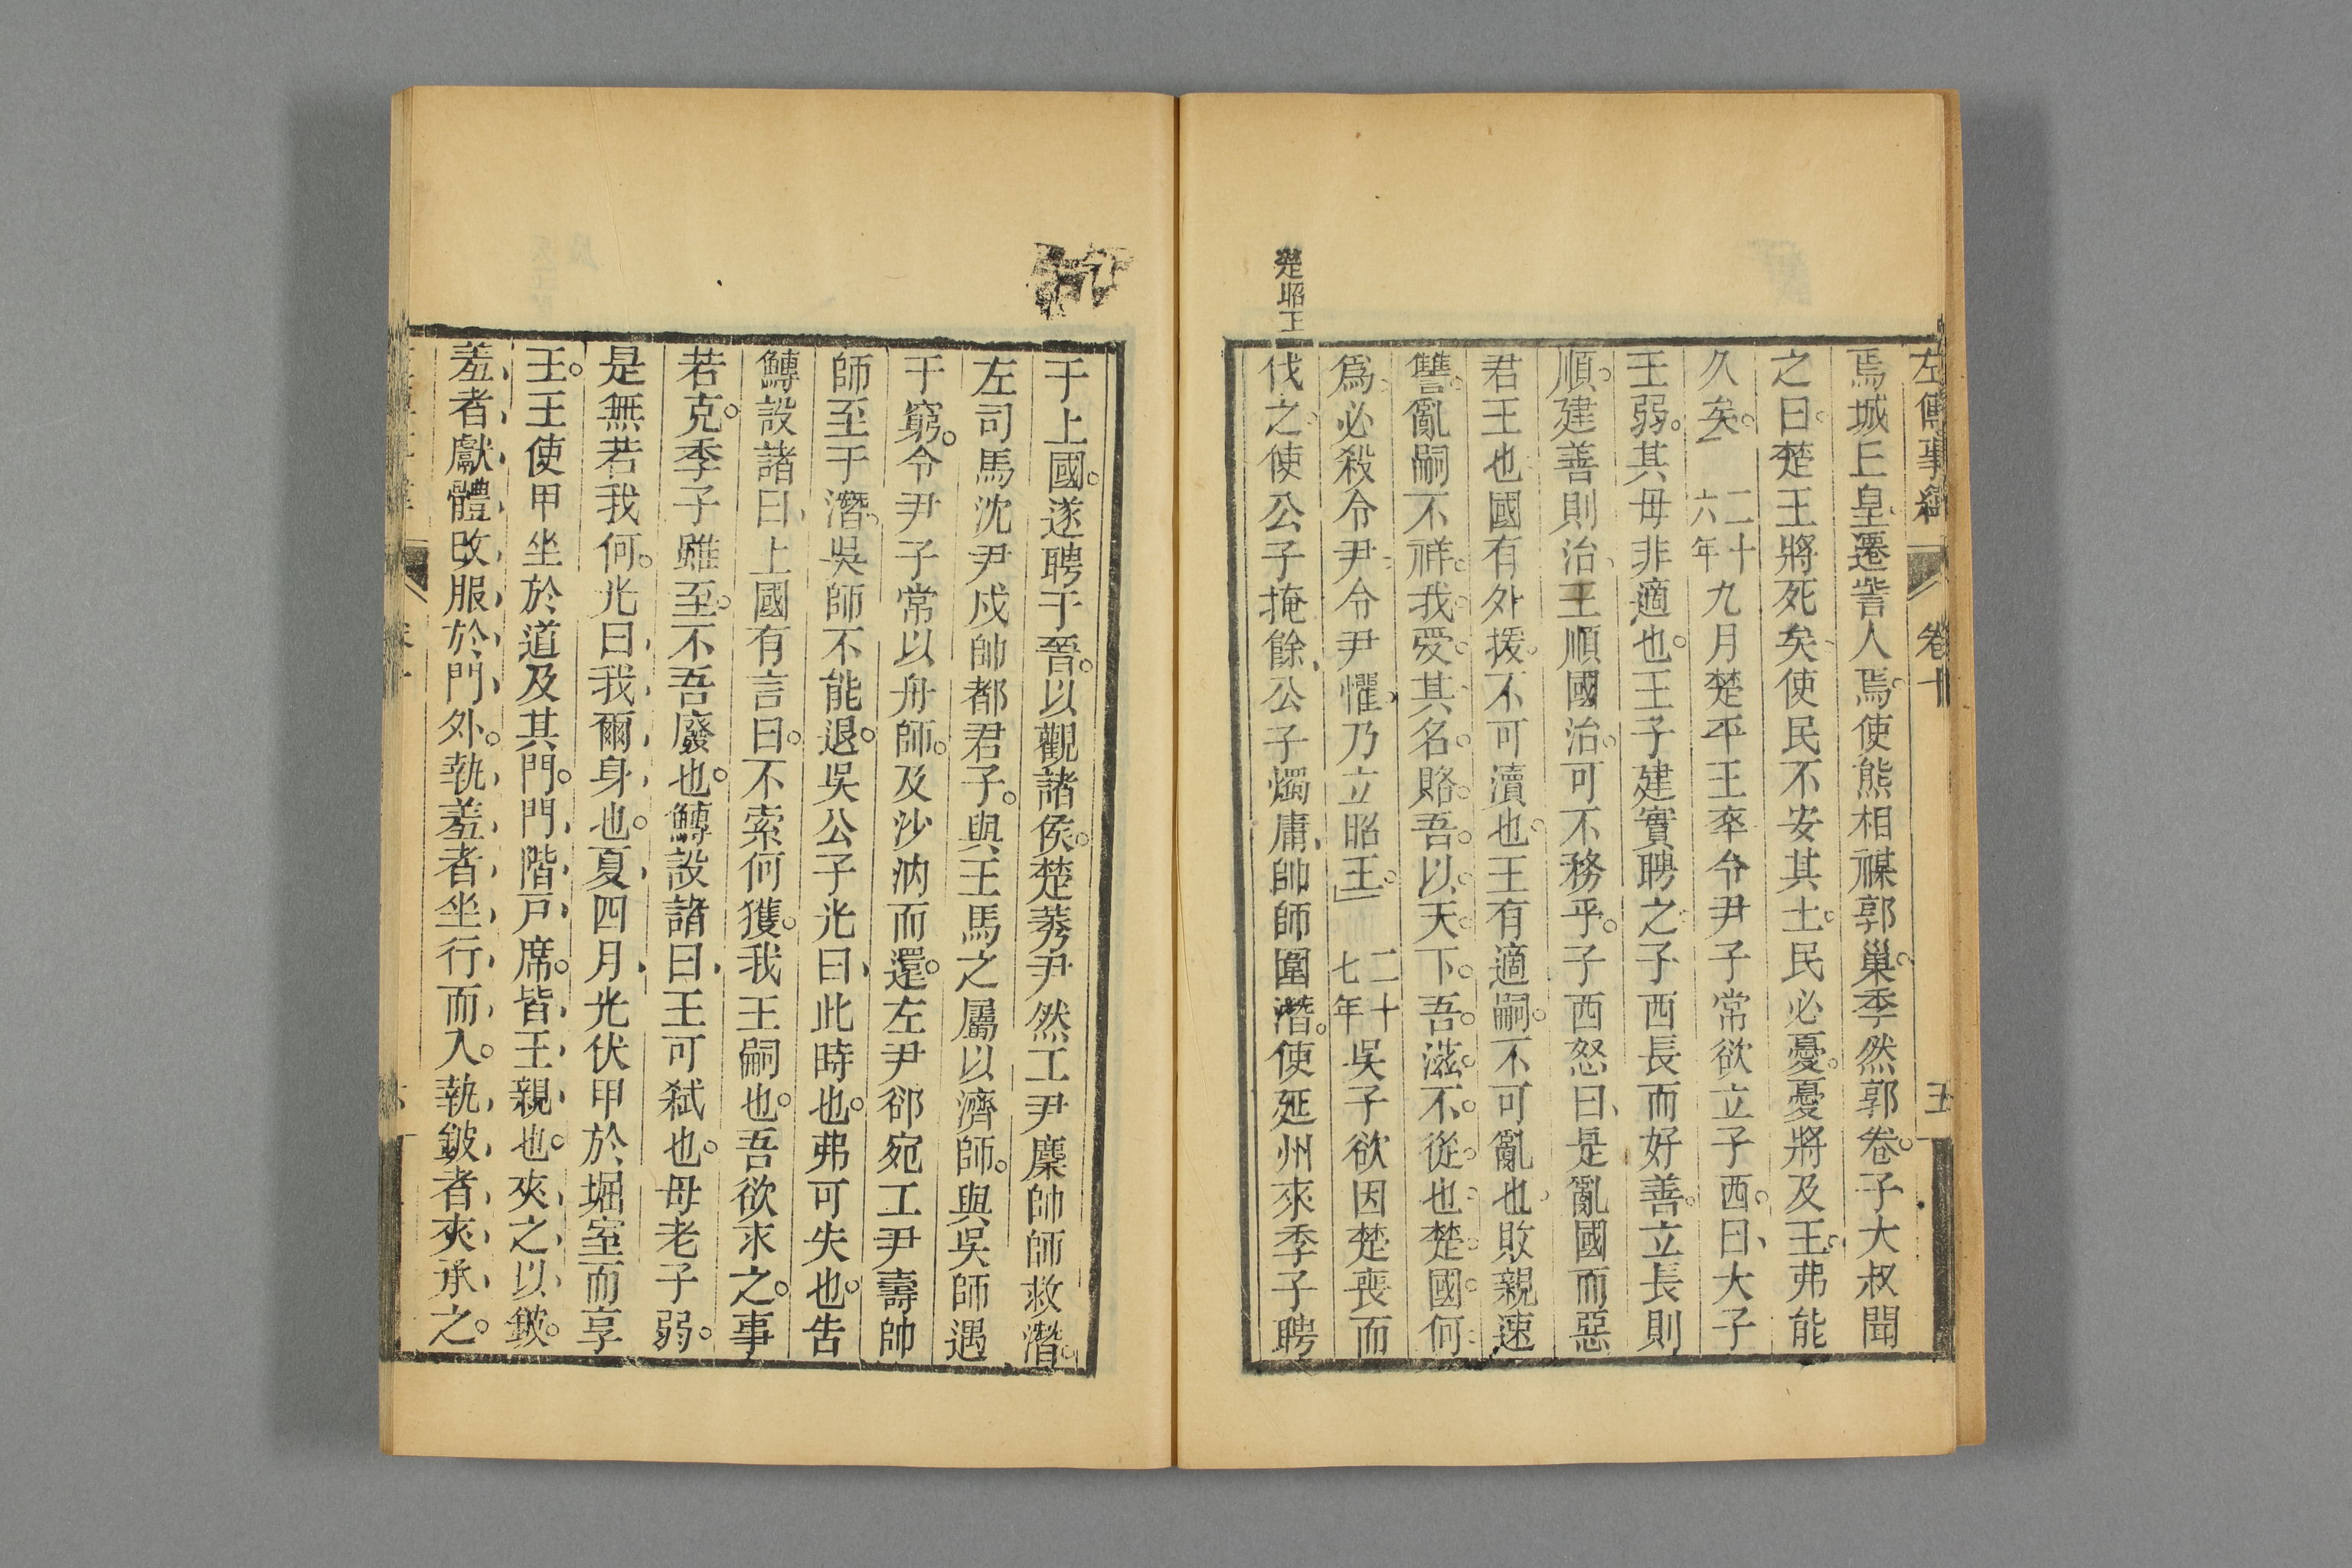 左傳事緯 卷十 五
焉城上皇遷訾人焉使熊相禖郭巢季然郭卷子大叔聞
之曰楚王將死矣使民不安其土民必憂憂將及王弗能
久矣 二十六年 九月楚平王卒令尹子常欲立子西曰大子
王弱其母非適也王子建實聘之子西長而好善立長則
順建善則治王順國治可不務乎子西怒曰是亂國而惡
君王也國有外援不可瀆也王有適嗣不可亂也敗親速
讐亂嗣不祥我受其名賂吾以天下吾滋不從也楚國何
爲必殺令尹令尹懼乃立昭王」 二十七年 吳子欲因楚喪而
楚昭王
伐之使公子掩餘公子燭庸帥師圍潛使延州來季子聘
于上國遂聘于晉以觀諸侯楚莠尹然工尹麇帥師救潛
左司馬沈尹戌帥都君子與王馬之屬以濟師與吳師遇
于窮令尹子常以舟師及沙汭而還左尹郤宛工尹壽帥
師至于潛吳師不能退吳公子光曰此時也弗可失也告
鱄設諸曰上國有言曰不索何獲我王嗣也吾欲求之事
若克季子雖至不吾廢也鱄設諸曰王可弒也母老子弱
是無若我何光曰我爾身也夏四月光伏甲於堀室而享
王王使甲坐於道及其門門階戶席皆王親也夾之以鈹
羞者獻體改服於門外執羞者坐行而入執鈹者夾承之